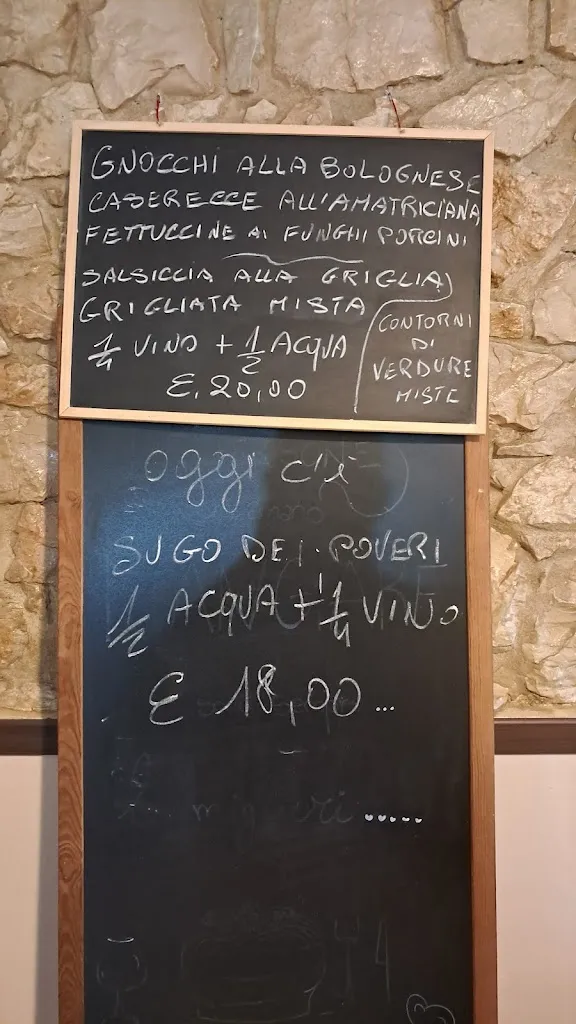 GNOCCHI ALLA BOLOGNESE
CASERECCE ALL'AMATRICIANA
FETTUCCINE AI FUNGHI PORCINI
SALSICCIA ALLA GRIGLIA
GRIGLIATA MISTA
1/4 VINO + 1/2 ACQUA
€, 20,00
CONTORNI
DI
VERDURE
MISTE
oggi c'è
SUGO DEI POVERI
1/2 ACQUA + 1/4 VINO
€ 18,00...